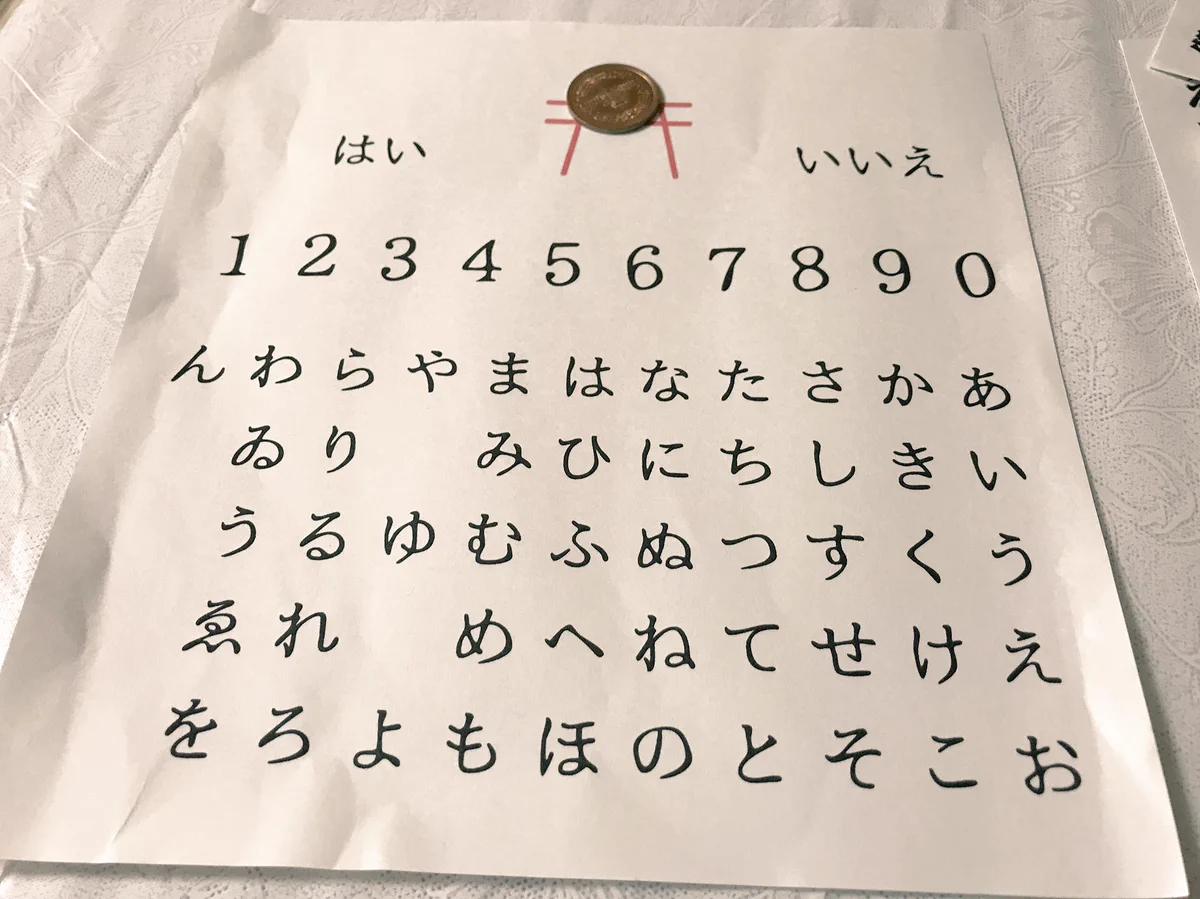 はい いいえ
1 2 3 4 5 6 7 8 9 0
ん わ ら や ま は な た さ か あ
ゐ り み ひ に ち し き い
う る ゆ む ふ ぬ つ す く う
ゑ れ め へ ね て せ け え
を ろ よ も ほ の と そ こ お